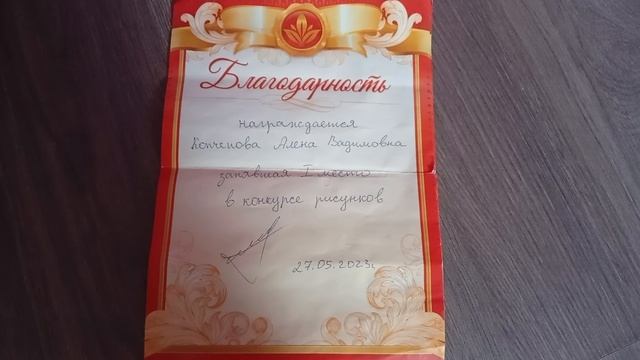 Благодарность
награждается
Копченова Алена Вадимовна
занявшая I место
в конкурсе рисунков
27.05.2023г.